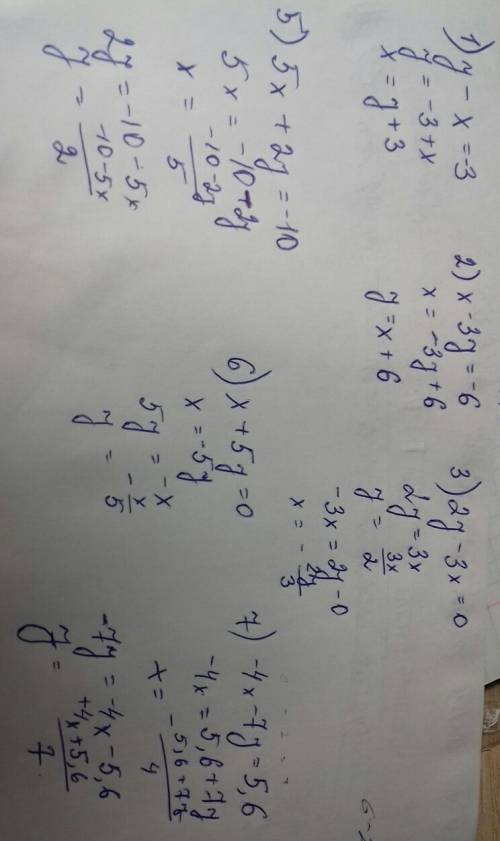 1) y - x = -3
y = -3 + x
x = y + 3
2) x - 3y = -6
x = -3y + 6
y = x + 6
3) 2y - 3x = 0
2y = 3x
y = 3x/2
-3x = 2y - 0
x = - 2y/3
5) 5x + 2y = -10
5x = -10 + 2y
x = -10-2y/5
2y = -10 - 5x
y = -10-5x/2
6) x + 5y = 0
x = -5y
5y = -x
y = - x/5
7) -4x - 7y = 5,6
-4x = 5,6 + 7y
x = - 5,6+7y/4
-7y = -4x - 5,6
y = +4x+5,6/7